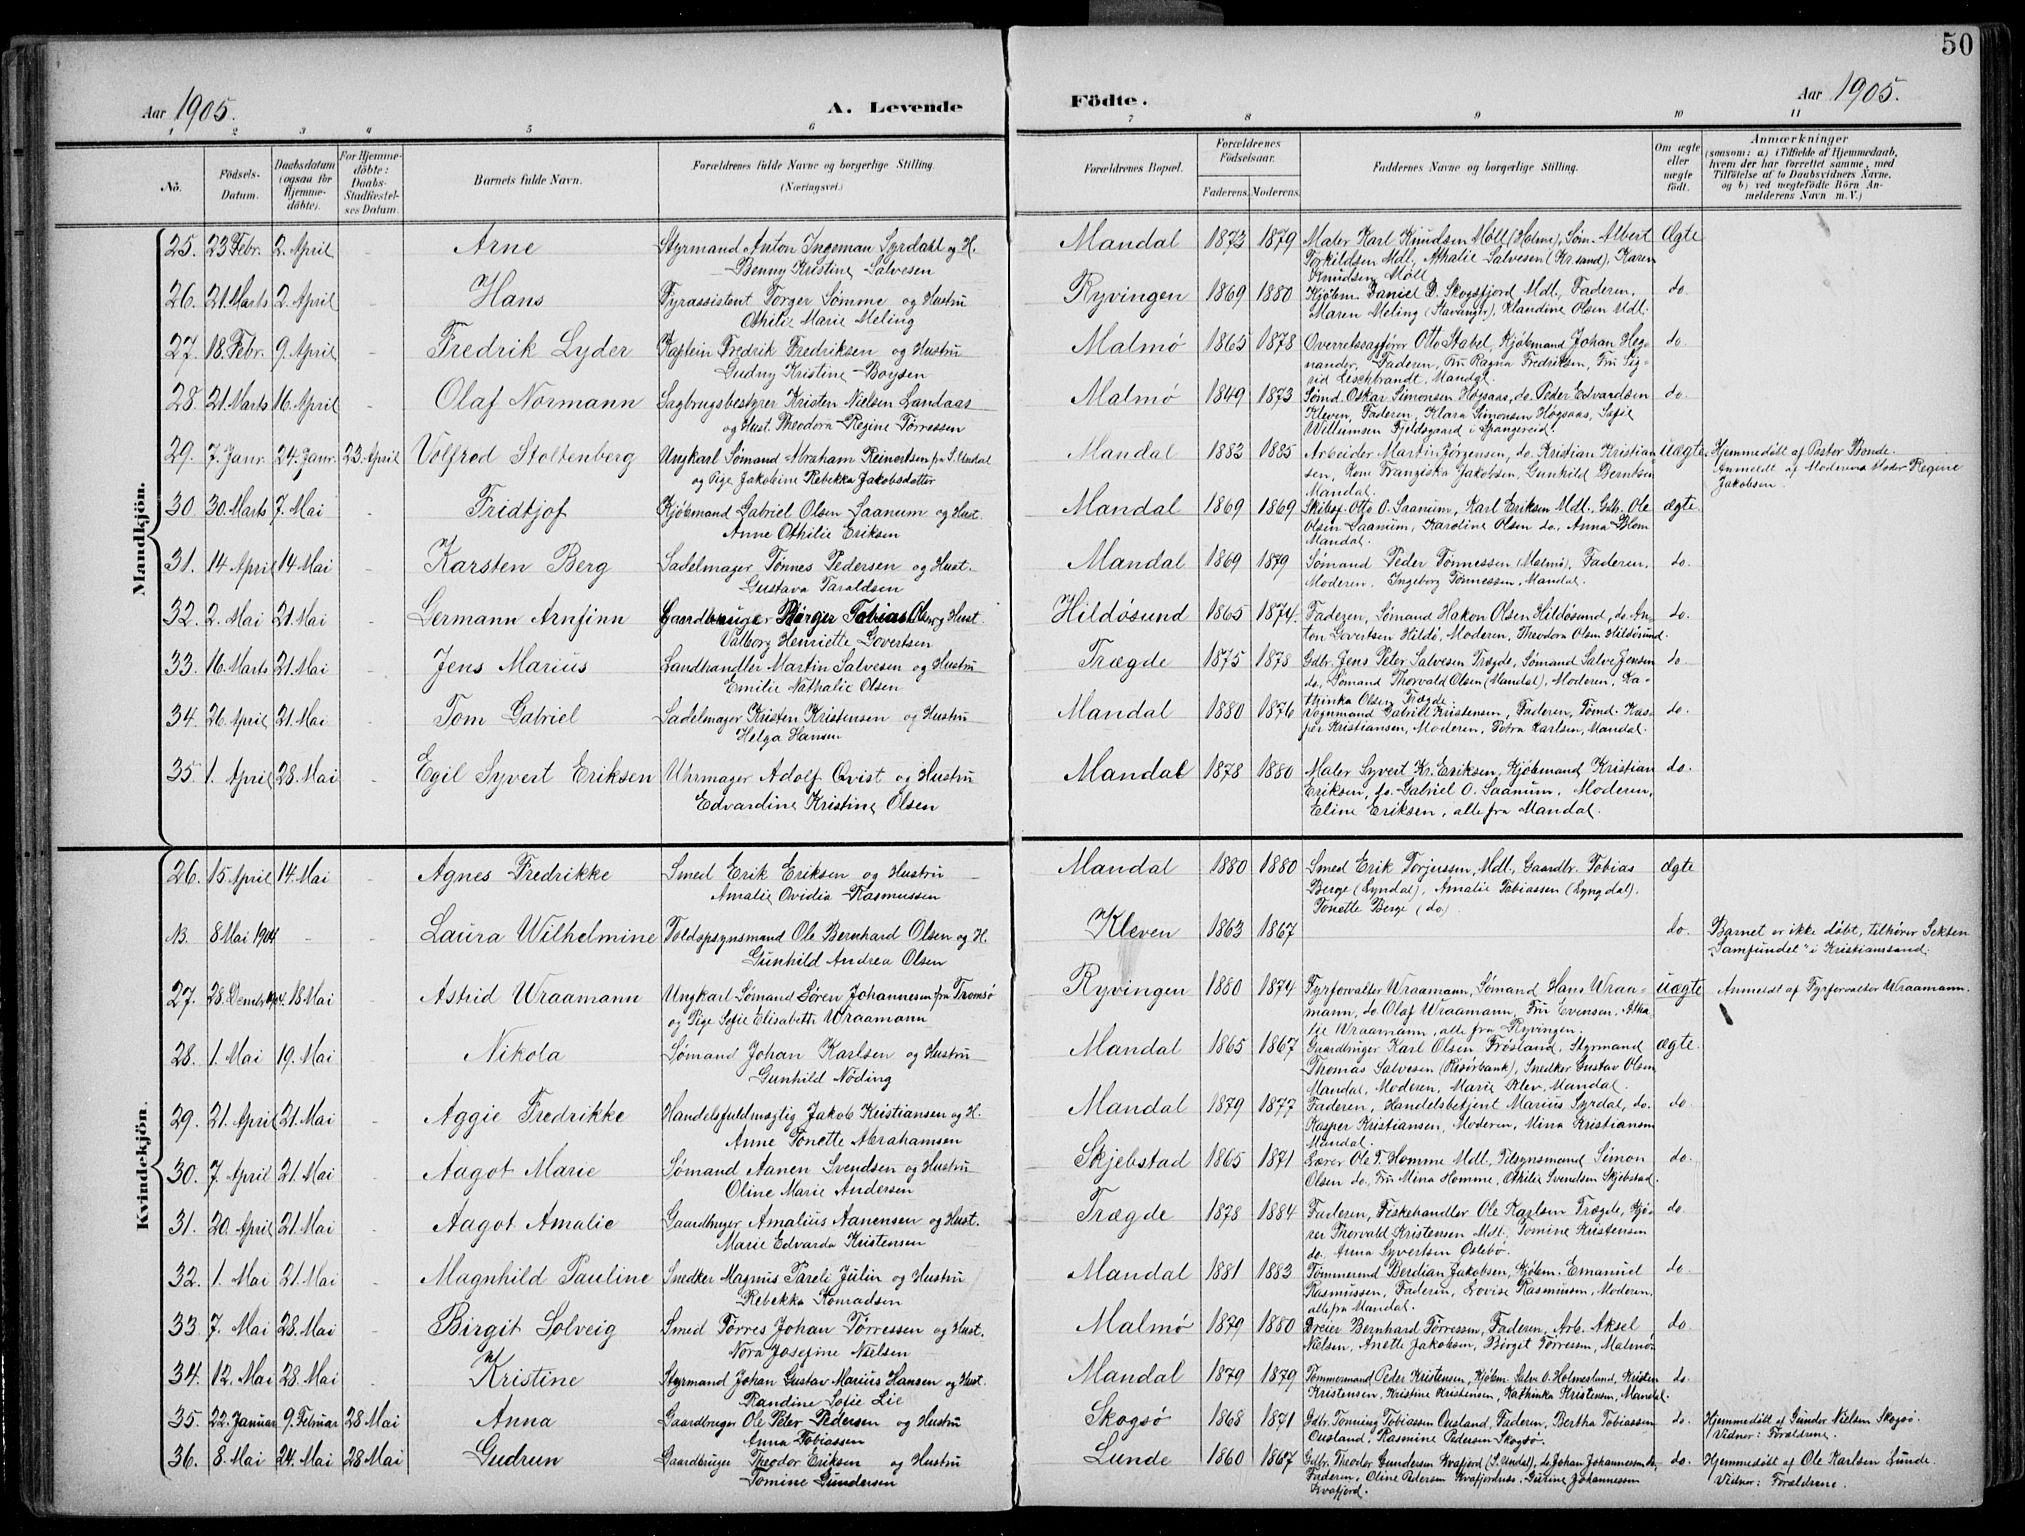 50
Aar 1905.
A. Levende
Födte.
Aar 1905.
1 2 3 4 5 6 7 8 9 10 11
No.
Födsels-Datum.
Daabsdatum (ogsaa for Hjemme-döbte).
For Hjemme-döbte: Daabs-Stadfæstel-ses Datum.
Barnets fulde Navn.
Forældrenes fulde Navne og borgerlige Stilling.
(Næringsvei.)
Forældrenes Bopæl.
Forældrenes Födselsaar.
Faderens. Moderens.
Faddernes Navne og borgerlige Stilling.
Om ægte eller uægte födt.
Anmærkninger
(saasom: a) i Tilfælde af Hjemmedaab, hvem der har forrettet samme, med Tilföielse af to Daabsvidners Navne, og b) ved uægtefödte Börn An-melderens Navn m. V.)
Mandkjön.
25. 23 Febr. 2. April - Arne Styrmand Anton Ingeman Syrdahl og H. Mandal 1873 1879 Maler Karl Knudsen Möll (Holme), Söm. Albert Ægte
Benny Kristine Salvesen Torkildsen Mdl., Athalie Salvesen (Kr.sand), Karen
Knudsen Möll
26. 21. Marts 2. April - Hans Fyrassistent Torger Sömme og Hustru Ryvingen 1869 1880 Kjöbm. Daniel D. Skogsfjord Mdl., Faderen, do.
Othilie Marie Meling Maren Meling (Stavanger), Klandine Olsen Mdl.
27. 18. Febr. 9. April - Fredrik Lyder Kaptein Fredrik Fredriksen og Hustru Malmö 1865 1878 Overretssagförer Otto Stabel, Kjöbmand Johan Heg- do.
Gudny Kristine Boysen nander, Faderen, Fru Ragna Fredriksen, Fru Sig-
rid Leschbrandt, Mandal.
28. 21. Marts 16. April - Olaf Normann Sagbrugsbestyrer Kristen Nielsen Landaas Malmö 1849 1873 Sömd. Oskar Simonsen Högsaas, do. Peder Edvardsen do.
og Hust. Theodora Regine Törressen Kleven, Faderen, Klara Simonsen Högsaas, Sofie
Willumsen Fjeldsgaard i Spangereid
29. 7. Janr. 24. Janr. 23. April Volfred Stoltenberg Ungkarl Sömand Abraham Reinertsen fra S. Undal Mandal 1883 1885 Arbeider Martin Jörgensen, do. Kristian Kristian- uægte Hjemmedöbt af Pastor Bonde.
og Pige Jakobine Rebekka Jakobsdatter sen, Kone Franziska Jakobsen, Gunhild Berntsen Anmeldt af Moderens Moder Regine
Mandal. Jakobsen.
30 30. Marts 7. Mai - Fridtjof Kjöbmand Gabriel Olsen Saanum og Hust. Mandal 1869 1869 Skibsf. Otto O. Saanum, Karl Eriksen Mdl. Gdb. Ole ægte.
Anne Othilie Eriksen Olsen Saanum, Karoline Olsen do., Anna Blom
Mandal.
31. 14 April 14 Mai - Karsten Berg Sadelmager Tönnes Pedersen og Hust. Mandal 1869 1879 Sömand Peder Tönnessen (Malmö), Faderen, do.
Gustava Taraldsen Moderen, Ingeborg Tönnessen, Mandal.
32. 2. Mai 21. Mai - Lermann Arnfinn Gaardbruger Börger Tobias Olsen og Hust. Hildösund 1865 1874. Faderen, Sömand Hakon Olsen Hildösund, do. An- do.
Valborg Henriette Govertsen ton Govertsen Hildö, Moderen, Theodora Olsen Hildösund.
33. 16. Marts 21. Mai - Jens Marius Landhandler Martin Salvesen og Hustru Trægde 1875 1878 Gdbr. Jens Peter Salvesen Trægde, Sömand Salve Jensen do.
Emilie Nathalie Olsen do., Sömand Thorvald Olsen (Mandal), Moderen, Ka-
thinka Olsen Trægde.
34. 26. April 21. Mai - Tom Gabriel Sadelmager Kristen Kristensen og Hustru Mandal 1880 1876 Vognmand Gabriel Kristensen, Faderen, Tömd. Kas- do.
Helga Hansen per Kristiansen, Moderen, Petra Karlsen, Mandal.
35. 1. April 28. Mai - Egil Syvert Eriksen Uhrmager Adolf Qvist og Hustru Mandal 1878 1880 Maler Syvert Kr. Eriksen, Kjöbmand Kristian do.
Edvardine Kristine Olsen Eriksen, do. Gabriel O. Saanum, Moderen,
Eline Eriksen, alle fra Mandal.
Kvindekjön.
26. 15 April 14. Mai - Agnes Fredrikke Smed Erik Eriksen og Hustru Mandal 1880 1880 Smed Erik Torjussen, Mdl., Gaardbr. Tobias ægte
Amalie Ovidia Rasmussen Berge (Lyndal), Amalie Tobiassen (Lyngdal).
Tonette Berge (do).
NB. 8 Mai 1904 - - Laura Wilhelmine Toldopsynsmand Ole Bernhard Olsen og H. Kleven 1863 1867 do. Barnet er ikke döbt, tilhörer Sekten
Gunhild Andrea Olsen "Samfundet" i Kristianssand.
27. 28. Decmbr. 1904. 18 Mai - Astrid Wraamann Ungkarl Sömand Sören Johannesen fra Tromsö Ryvingen 1880 1874 Fyrforvalter Wraamann, Sömand Hans Wraa- uægte Anmeldt af Fyrforvalter Wraamann.
og Pige Sofie Elisabeth Wraamann mann, do. Olaf Wraamann, Fru Evensen, Atha-
lie Wraamann, alle fra Ryvingen.
28. 1. Mai 19. Mai - Nikola Sömand Johan Karlsen og Hustru Mandal 1865 1867 Gaardbruger Karl Olsen Fröstand, Styrmand ægte.
Gunhild Nöding Thomas Salvesen (Risörbank), Snedker Gustav Olsen
Mandal, Moderen, Marie Klev, Mandal.
29. 21. April 21. Mai - Aggie Fredrikke Handelsfuldmægtig Jakob Kristiansen og H. Mandal 1879 1877 Faderen, Handelsbetjent Marius Syrdal, do. do.
Anne Tonette Abrahamsen Kasper Kristiansen, Moderen, Mina Kristiansen
Mandal.
30. 7. April 21. Mai - Aagot Marie Sömand Aanen Svendsen og Hustru Skjebstad 1865 1871 Lærer Ole T. Homme Mdl., Tilsynsmand Simon do.
Oline Marie Andersen Olsen do., Fru Mina Homme, Othilie Svendsen Skjebstad.
31. 20. April 21. Mai - Aagot Amalie Gaardbruger Amalius Aanensen og Hust. Trægde 1878 1884 Faderen, Fiskehandler Ole Karlsen Trægde, Kjö- do.
Marie Edvarda Kristensen rer Thorvald Kristensen Mdl., Tomine Kristensen
do., Anna Syvertsen Östebö.
32. 1. Mai 21. Mai - Magnhild Pauline Snedker Magnus Pareli Julin og Hustru Mandal 1881 1883 Tömmermd Berdian Jakobsen, Kjöbm. Emanuel do.
Rebekka Konradsen Rasmussen, Faderen, Lovise Rasmussen, Moderen,
alle fra Mandal.
33. 7. Mai 28. Mai - Birgit Solveig Smed Törres Johan Törressen og Hust. Malmö 1879 1880 Dreier Bernhard Törressen, Faderen, Arb. Aksel do.
Nora Josefine Nielsen Nielsen, Anette Jakobsen, Birgit Törressen, Malmö.
34. 12. Mai 28. Mai - Kristine Styrmand Johan Gustav Marius Hansen og Hust. Mandal 1879 1879 Tömmermand Peder Kristensen, Kjöbm. Salve O. Holmesland, Kristen do.
Randine Sofie Lie Kristensen, Kristine Kristensen, Kathinka Kristensen, Mandal.
35. 22. Januar 9. Februar 28 Mai Anna Gaardbruger Ole Peter Pedersen og Hustru Skogsö 1868 1871 Gdbr. Tönning Tobiassen Ousland, Faderen, Bertha Tobiassen do. Hjemmedöbt af Gunder Nielsen Skogsö.
Anna Tobiassen Ousland, Rasmine Pedersen Skogsö. Vidner: Forældrene.
36. 8. Mai 24. Mai 28 Mai Gudrun Gaardbruger Theodor Eriksen og Hustru Lunde 1860 1867 Gdbr. Theodor Gundersen Kvafjord (S. Undal), do. Johan Johannessen do., do. Hjemmedöbt af Ole Karlsen Lunde.
Tomine Gundersen Faderen, Oline Pedersen Kvafjordnes, Gurine Johannessen Vidner: Forældrene.
Kvafjord.